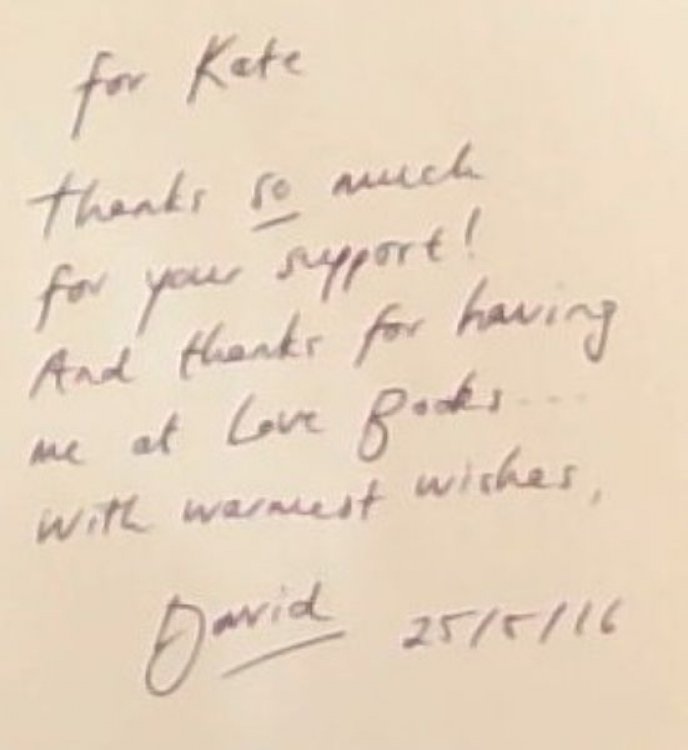 for Kate
thanks so much
for your support!
And thanks for having
me at Love Books...
with warmest wishes,
David 25/5/16